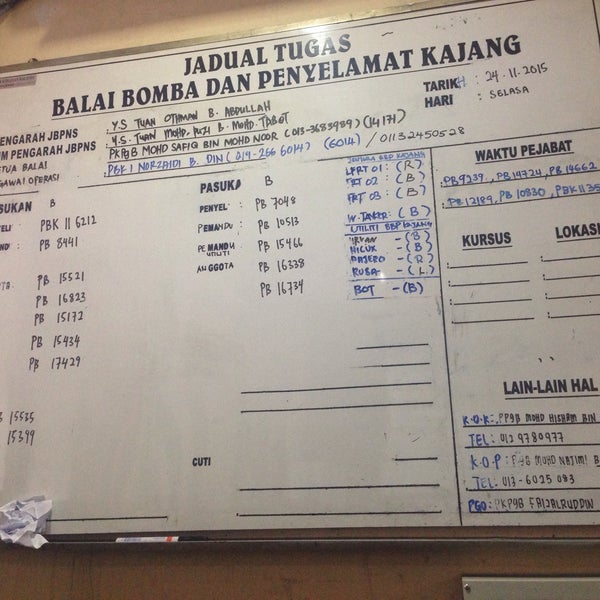 JADUAL TUGAS
BALAI BOMBA DAN PENYELAMAT KAJANG
TARIKH : 24.11.2015
HARI : SELASA
PENGARAH JBPNS : Y.S TUAN OTHMAN B. ABDULLAH
PENGARAH JBPNS : Y.S. TUAN MOHD. B. MOHD. TABOT
BALAI PKPgB MOHD SAFIQ BIN MOHD NOOR (013-3683989) (14171)
OPERASI : PBK I NORZAIDI B. DIN (019-266 6014) (6014) / 01132450528
B
PBK II 6212
PB 8441
PB 15521
PB 16823
PB 15172
PB 15434
PB 17429
15535
15399
PASUKA B
PENYEL : PB 7048
PEMANDU : PB 10513
PEMANDU UTILITI PB 15466
ANGGOTA PB 16338
PB 16734
CUTI
JENTERA BBP KAJANG
LFRT 01 : (R)
FRT 02 : (B)
FRT 03 : (B)
W.TANKER : (B)
UTILITI BBP KAJANG
- (B)
HILUX - (B)
PAJERO - (R)
RUSA - (L)
BOT - (B)
WAKTU PEJABAT
PB9239, PB 14724, PB 14662
PB 12189, PB 10830, PBK II 35
KURSUS LOKASI
LAIN-LAIN HAL
K.O.K : PPgB MOHD HISHAM BIN
TEL : 012 9780977
K.O.P : MOHD NAJIMI B
TEL : 013-6025 083
PGO : PKPgB FAIZALRUDDIN